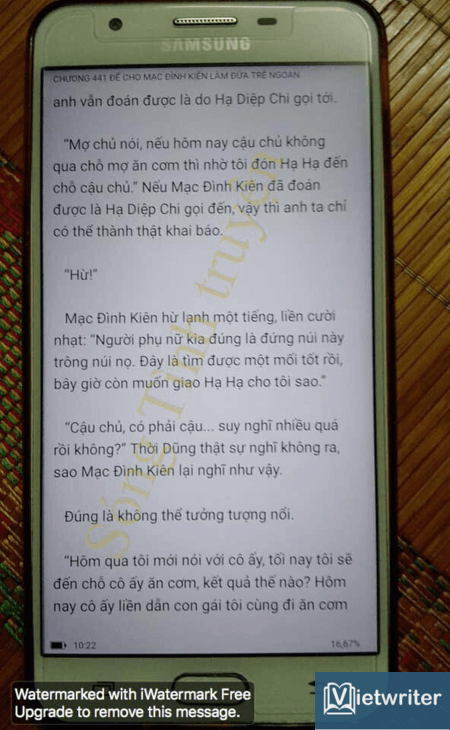 SAMSUNG
CHƯƠNG 441 ĐỂ CHO MẠC ĐÌNH KIÊN LÀM ĐỨA TRẺ NGOAN
anh vẫn đoán được là do Hạ Diệp Chi gọi tới.
“Mợ chủ nói, nếu hôm nay cậu chủ không
qua chỗ mợ ăn cơm thì nhờ tôi đón Hạ Hạ đến
chỗ cậu chủ.” Nếu Mạc Đình Kiên đã đoán
được là Hạ Diệp Chi gọi đến, vậy thì anh ta chỉ
có thể thành thật khai báo.
“Hừ!”
Mạc Đình Kiên hừ lạnh một tiếng, liền cười
nhạt: “Người phụ nữ kia đúng là đứng núi này
trông núi nọ. Đây là tìm được một mối tốt rồi,
bây giờ còn muốn giao Hạ Hạ cho tôi sao.”
“Cậu chủ, có phải cậu... suy nghĩ nhiều quá
rồi không?” Thời Dũng thật sự nghĩ không ra,
sao Mạc Đình Kiên lại nghĩ như vậy.
Đúng là không thể tưởng tượng nổi.
“Hôm qua tôi mới nói với cô ấy, tối nay tôi sẽ
đến chỗ cô ấy ăn cơm, kết quả thế nào? Hôm
nay cô ấy liền dẫn con gái tôi cùng đi ăn cơm
10:22
16,67%
Sóng Tình truyện
Watermarked with iWatermark Free
Upgrade to remove this message.
Vietwriter